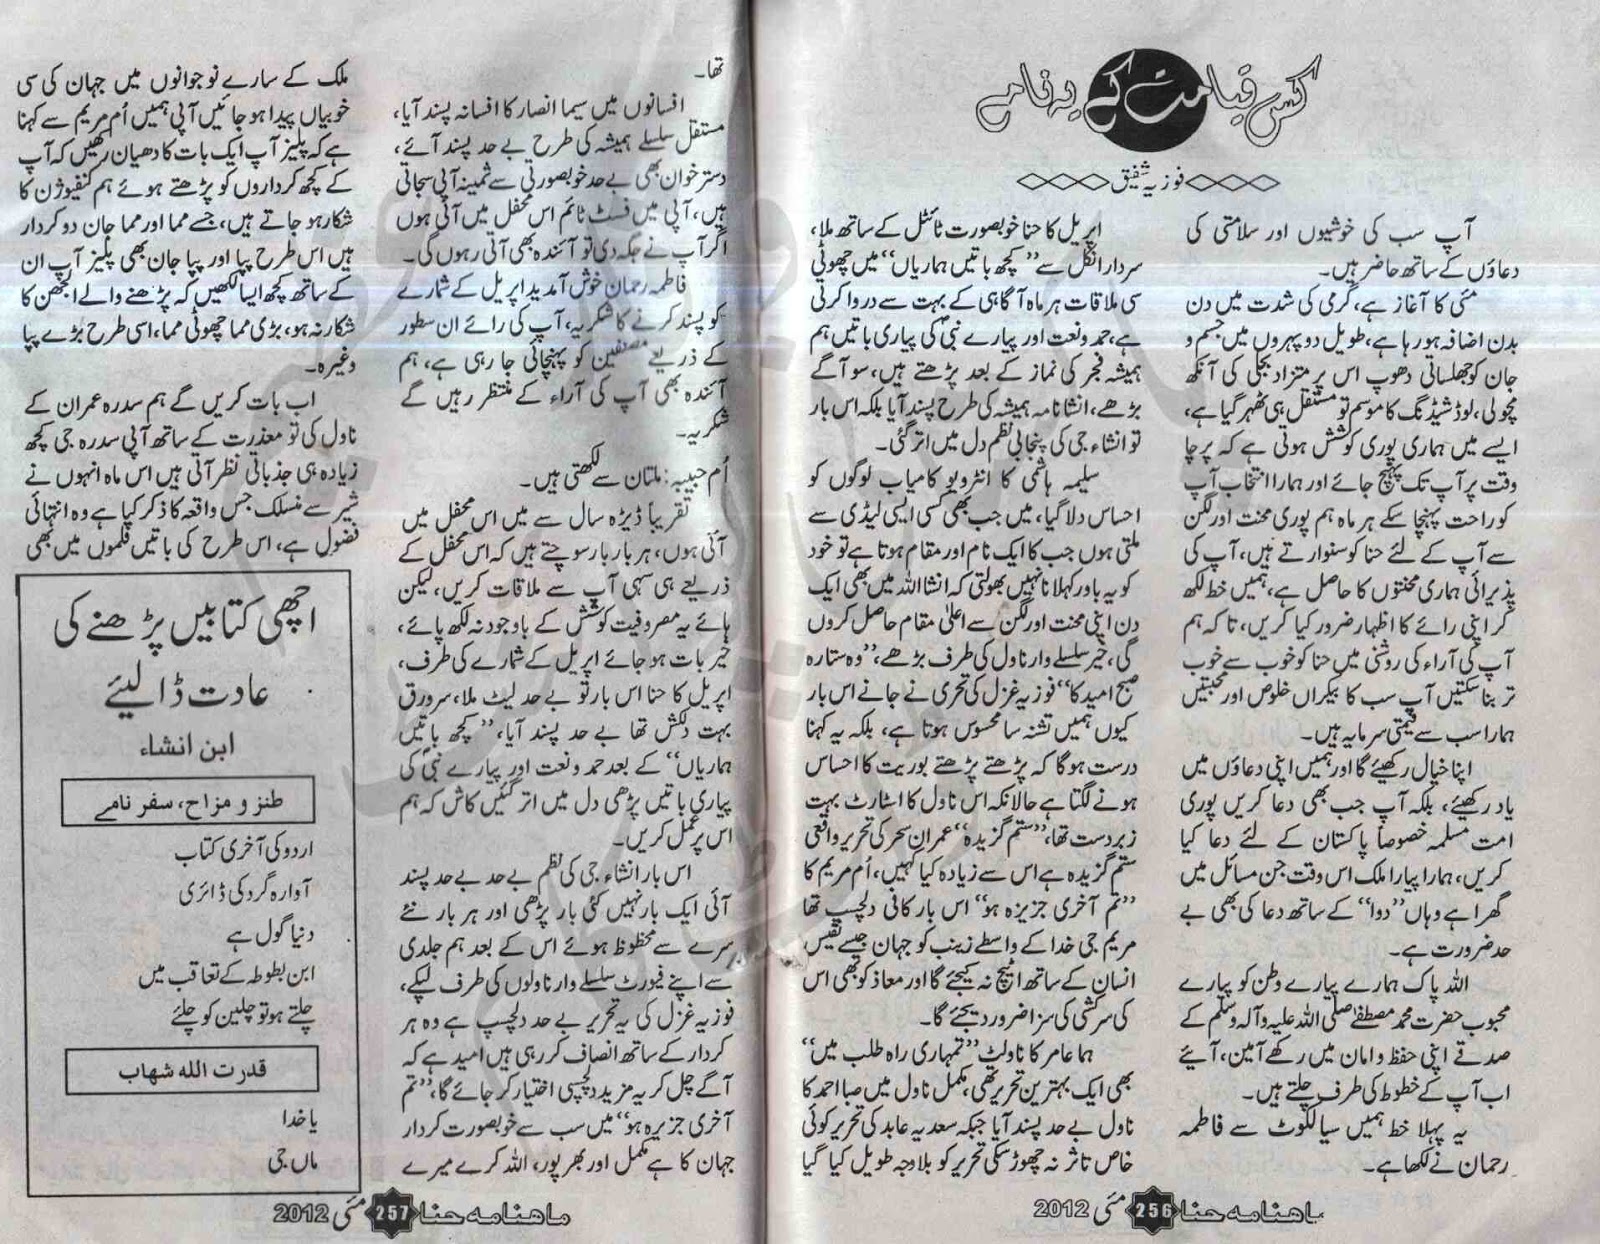 کس قیامت کے یہ نامے
فوزیہ شفیق
آپ سب کی خوشیوں اور سلامتی کی
دعاؤں کے ساتھ حاضر ہیں۔
مئی کا آغاز ہے، گرمی کی شدت میں دن
بدن اضافہ ہو رہا ہے، طویل دوپہروں میں جسم و
جان کو جھلساتی دھوپ اس پر متزاد بجلی کی آنکھ
مچولی، لوڈشیڈنگ کا موسم تو مستقل ہی ٹھہر گیا ہے،
ایسے میں ہماری پوری کوشش ہوتی ہے کہ پرچا
وقت پر آپ تک پہنچ جائے اور ہمارا انتخاب آپ
کو راحت پہنچا سکے ہر ماہ ہم پوری محنت اور لگن
سے آپ کے لئے حنا کو سنوارتے ہیں، آپ کی
پذیرائی ہماری محنتوں کا حاصل ہے، ہمیں خط لکھ
کر اپنی رائے کا اظہار ضرور کیا کریں، تا کہ ہم
آپ کی آراء کی روشنی میں حنا کو خوب سے خوب
تر بنا سکیں آپ سب کا بیکراں خلوص اور محبتیں
ہمارا سب سے قیمتی سرمایہ ہیں۔
اپنا خیال رکھیئے گا اور ہمیں اپنی دعاؤں میں
یاد رکھیئے، بلکہ آپ جب بھی دعا کریں پوری
امت مسلمہ خصوصاً پاکستان کے لئے دعا کیا
کریں، ہمارا پیارا ملک اس وقت جن مسائل میں
گھرا ہے وہاں ’’دوا‘‘ کے ساتھ دعا کی بھی بے
حد ضرورت ہے۔
اللہ پاک ہمارے پیارے وطن کو پیارے
محبوب حضرت محمد مصطفےٰ صلی اللہ علیہ و آلہ وسلم کے
صدقے اپنی حفظ و امان میں رکھے آمین، آیئے
اب آپ کے خطوط کی طرف چلتے ہیں۔
یہ پہلا خط ہمیں سیالکوٹ سے فاطمہ
رحمان نے لکھا ہے۔
اپریل کا حنا خوبصورت ٹائٹل کے ساتھ ملا،
سردار انکل سے ’’کچھ باتیں ہماریاں‘‘ میں چھوٹی
سی ملاقات ہر ماہ آگاہی کے بہت سے در وا کرتی
ہے، حمد و نعت اور پیارے نبیؐ کی پیاری باتیں ہم
ہمیشہ فجر کی نماز کے بعد پڑھتے ہیں، سو آگے
بڑھے، انشا نامہ ہمیشہ کی طرح پسند آیا بلکہ اس بار
تو انشاء جی کی پنجابی نظم دل میں اتر گئی۔
سلیمہ ہاشمی کا انٹرویو کامیاب لوگوں کو
احساس دلا گیا، میں جب بھی کسی ایسی لیڈی سے
ملتی ہوں جب کا ایک نام اور مقام ہوتا ہے تو خود
کو یہ باور کہلانا نہیں بھولتی کہ انشا اللہ میں بھی ایک
دن اپنی محنت اور لگن سے اعلیٰ مقام حاصل کروں
گی، خیر سلسلے وار ناول کی طرف بڑھے، ’’وہ ستارہ
صبح امید کا‘‘ فوزیہ غزل کی تحری نے جانے اس بار
کیوں ہمیں تشنہ سا محسوس ہوتا ہے، بلکہ یہ کہنا
درست ہو گا کہ پڑھتے پڑھتے بوریت کا احساس
ہونے لگتا ہے حالانکہ اس ناول کا اسٹارٹ بہت
زبردست تھا، ’’ستم گزیدہ‘‘ عمران سحر کی تحریر واقعی
ستم گزیدہ ہے اس سے زیادہ کیا کہیں، اُم مریم کا
’’تم آخری جزیرہ ہو‘‘ اس بار کافی دلچسپ تھا
مریم جی خدا کے واسطے زینب کو جہان جیسے نفیس
انسان کے ساتھ اٹیچ نہ کیجئے گا اور معاذ کو بھی اس
کی سرکشی کی سزا ضرور دیجئے گا۔
ہما عامر کا ناولٹ ’’تمہاری راہ طلب میں‘‘
بھی ایک بہترین تحریر تھی، مکمل ناول میں صبا احمد کا
ناول بے حد پسند آیا جبکہ سعدیہ عابد کی تحریر کوئی
خاص تاثر نہ چھوڑ سکی تحریر کو بلاوجہ طویل کیا گیا
ماہنامہ حنا 256 مئی 2012
تھا۔
افسانوں میں سیما انصار کا افسانہ پسند آیا،
مستقل سلسلے ہمیشہ کی طرح بے حد پسند آئے،
دسترخوان بھی بے حد خوبصورتی سے ثمینہ آپی سجاتی
ہیں، آپی میں فسٹ ٹائم اس محفل میں آئی ہوں
اگر آپ نے جگہ دی تو آئندہ بھی آتی رہوں گی۔
فاطمہ رحمان خوش آمدید اپریل کے شمارے
کو پسند کرنے کا شکریہ، آپ کی رائے ان سطور
کے ذریعے مصنفین کو پہنچائی جا رہی ہے، ہم
آئندہ بھی آپ کی آراء کے منتظر رہیں گے
شکریہ۔
اُم حبیبہ: ملتان سے لکھتی ہیں۔
تقریباً ڈیڑھ سال سے میں اس محفل میں
آئی ہوں، ہر بار بار سوچتے ہیں کہ اس محفل کے
ذریعے ہی سہی آپ سے ملاقات کریں، لیکن
ہائے یہ مصروفیت کوشش کے باوجود نہ لکھ پائے،
خیر بات ہو جائے اپریل کے شمارے کی طرف،
اپریل کا حنا اس بار تو بے حد لیٹ ملا، سرورق
بہت دلکش تھا بے حد پسند آیا، ’’کچھ باتیں
ہماریاں‘‘ کے بعد حمد و نعت اور پیارے نبیؐ کی
پیاری باتیں پڑھی دل میں اتر گئیں کاش کہ ہم
اس پر عمل کریں۔
اس بار انشاء جی کی نظم بے حد بے حد پسند
آئی ایک بار نہیں کئی بار پڑھی اور ہر بار نئے
سرے سے محظوظ ہوئے اس کے بعد ہم جلدی
سے اپنے فیورٹ سلسلے وار ناولوں کی طرف لپکے،
فوزیہ غزل کی یہ تحریر بے حد دلچسپ ہے وہ ہر
کردار کے ساتھ انصاف کر رہی ہیں امید ہے کہ
آگے چل کر یہ مزید دلچسپی اختیار کر جائے گا، ’’تم
آخری جزیرہ ہو‘‘ میں سب سے خوبصورت کردار
جہان کا ہے مکمل اور بھرپور، اللہ کرے میرے
ملک کے سارے نوجوانوں میں جہان کی سی
خوبیاں پیدا ہو جائیں آپی ہمیں اُم مریم سے کہنا
ہے کہ پلیز آپ ایک بات کا دھیان رکھیں کہ آپ
کے کچھ کرداروں کو پڑھتے ہوئے ہم کنفیوژن کا
شکار ہو جاتے ہیں، جسے مما اور مما جان دو کردار
ہیں اس طرح پپا اور پپا جان بھی پلیز آپ ان
کے ساتھ کچھ ایسا لکھیں کہ پڑھنے والے الجھن کا
شکار نہ ہو، بڑی مما چھوٹی مما، اسی طرح بڑے پپا
وغیرہ۔
اب بات کریں گے ہم سدرہ عمران کے
ناول کی تو معذرت کے ساتھ آپی سدرہ جی کچھ
زیادہ ہی جذباتی نظر آتی ہیں اس ماہ انہوں نے
شیر سے منسلک جس واقعہ کا ذکر کیا ہے وہ انتہائی
فضول ہے، اس طرح کی باتیں فلموں میں بھی
اچھی کتابیں پڑھنے کی
عادت ڈالیئے
ابن انشاء
طنز و مزاح، سفر نامے
اردو کی آخری کتاب
آوارہ گرد کی ڈائری
دنیا گول ہے
ابن بطوطہ کے تعاقب میں
چلتے ہو تو چلین کو چلئے
قدرت اللہ شہاب
یا خدا
ماں جی
ماہنامہ حنا 257 مئی 2012